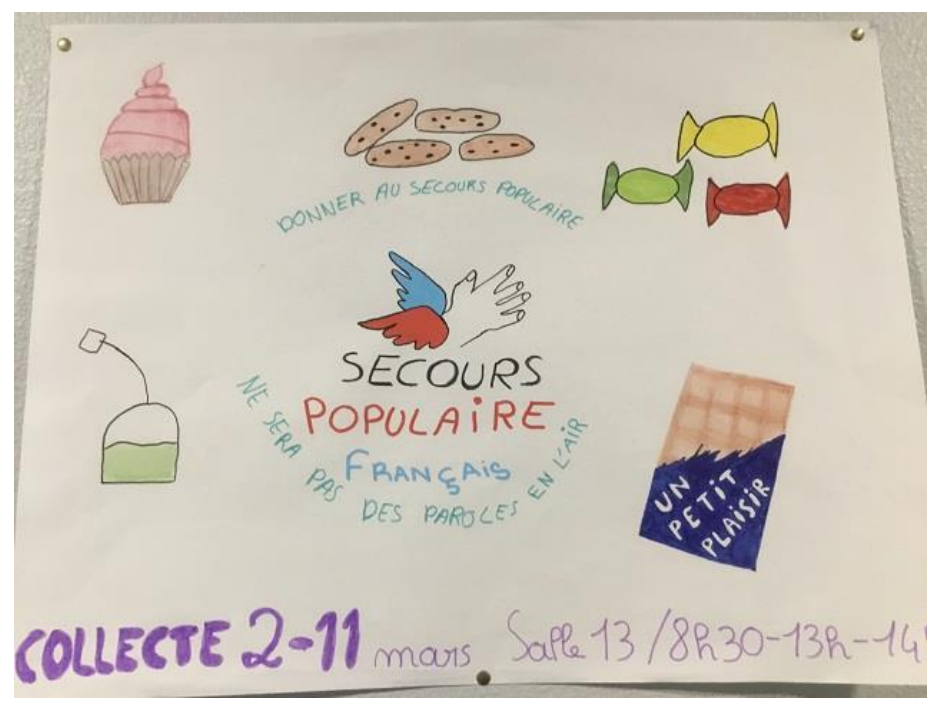 DONNER AU SECOURS POPULAIRE
SECOURS
POPULAIRE
FRANÇAIS
NE SERA PAS DES PAROLES EN L'AIR
UN
PETIT
PLAISIR
COLLECTE 2-11 mars Salle 13 / 8h30-13h-14